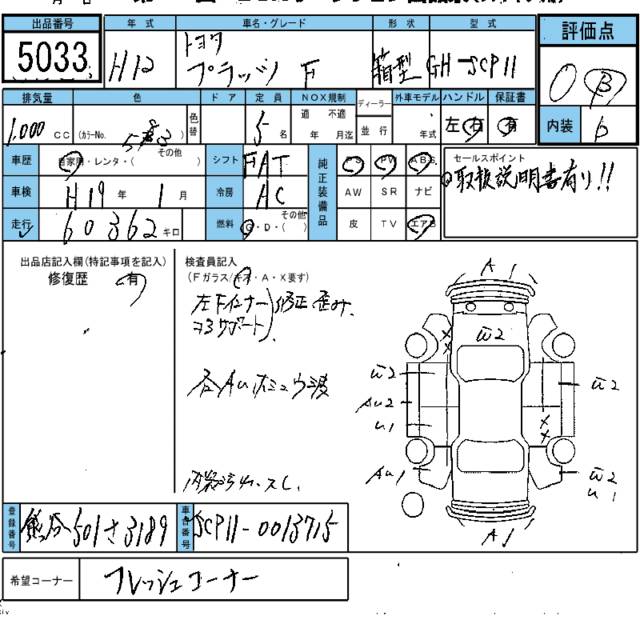 出品番号 年式 車名・グレード 形状 型式 評価点
5033 H12 トヨタ プラッツ F 箱型 GH-SCP11 0 B
排気量 色 ドア 定員 NOX規制 ディーラー 外車モデル ハンドル 保証書 内装 b
1,000 CC (カラーNo. ) 色替 5名 適 不適 年 月迄 並行 年式 左・右 有
車歴 自家用・レンタ・( その他 ) シフト FAT 純正装備品 PS PW ABS
車検 H19年 1月 冷房 AC AW SR ナビ
走行 60362キロ 燃料 G・D・( その他 ) 皮 TV エアB
セールスポイント
取扱説明書有り!!
出品店記入欄(特記事項を記入)
修復歴 有
検査員記入
(Fガラス/キズ・A・X要す)
左Fインナー
コアサポート
修正 歪み
各AU
内装汚れ・スレ
A1
W2
W2
AU2
U1
AU1
XX
XX
W2
W2
U1
A1
登録番号 熊谷501さ3189 車台番号 SCP11-0013715
希望コーナー フレッシュコーナー